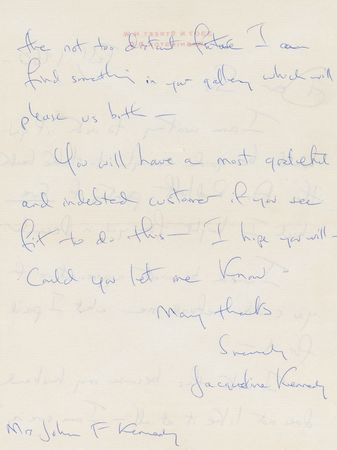 the not too distant future I can
find something in your gallery which will
please us both —
You will have a most grateful
and indebted customer if you see
fit to do this — I hope you will —
Could you let me know
Many thanks
Sincerely
Jacqueline Kennedy
Mrs John F Kennedy